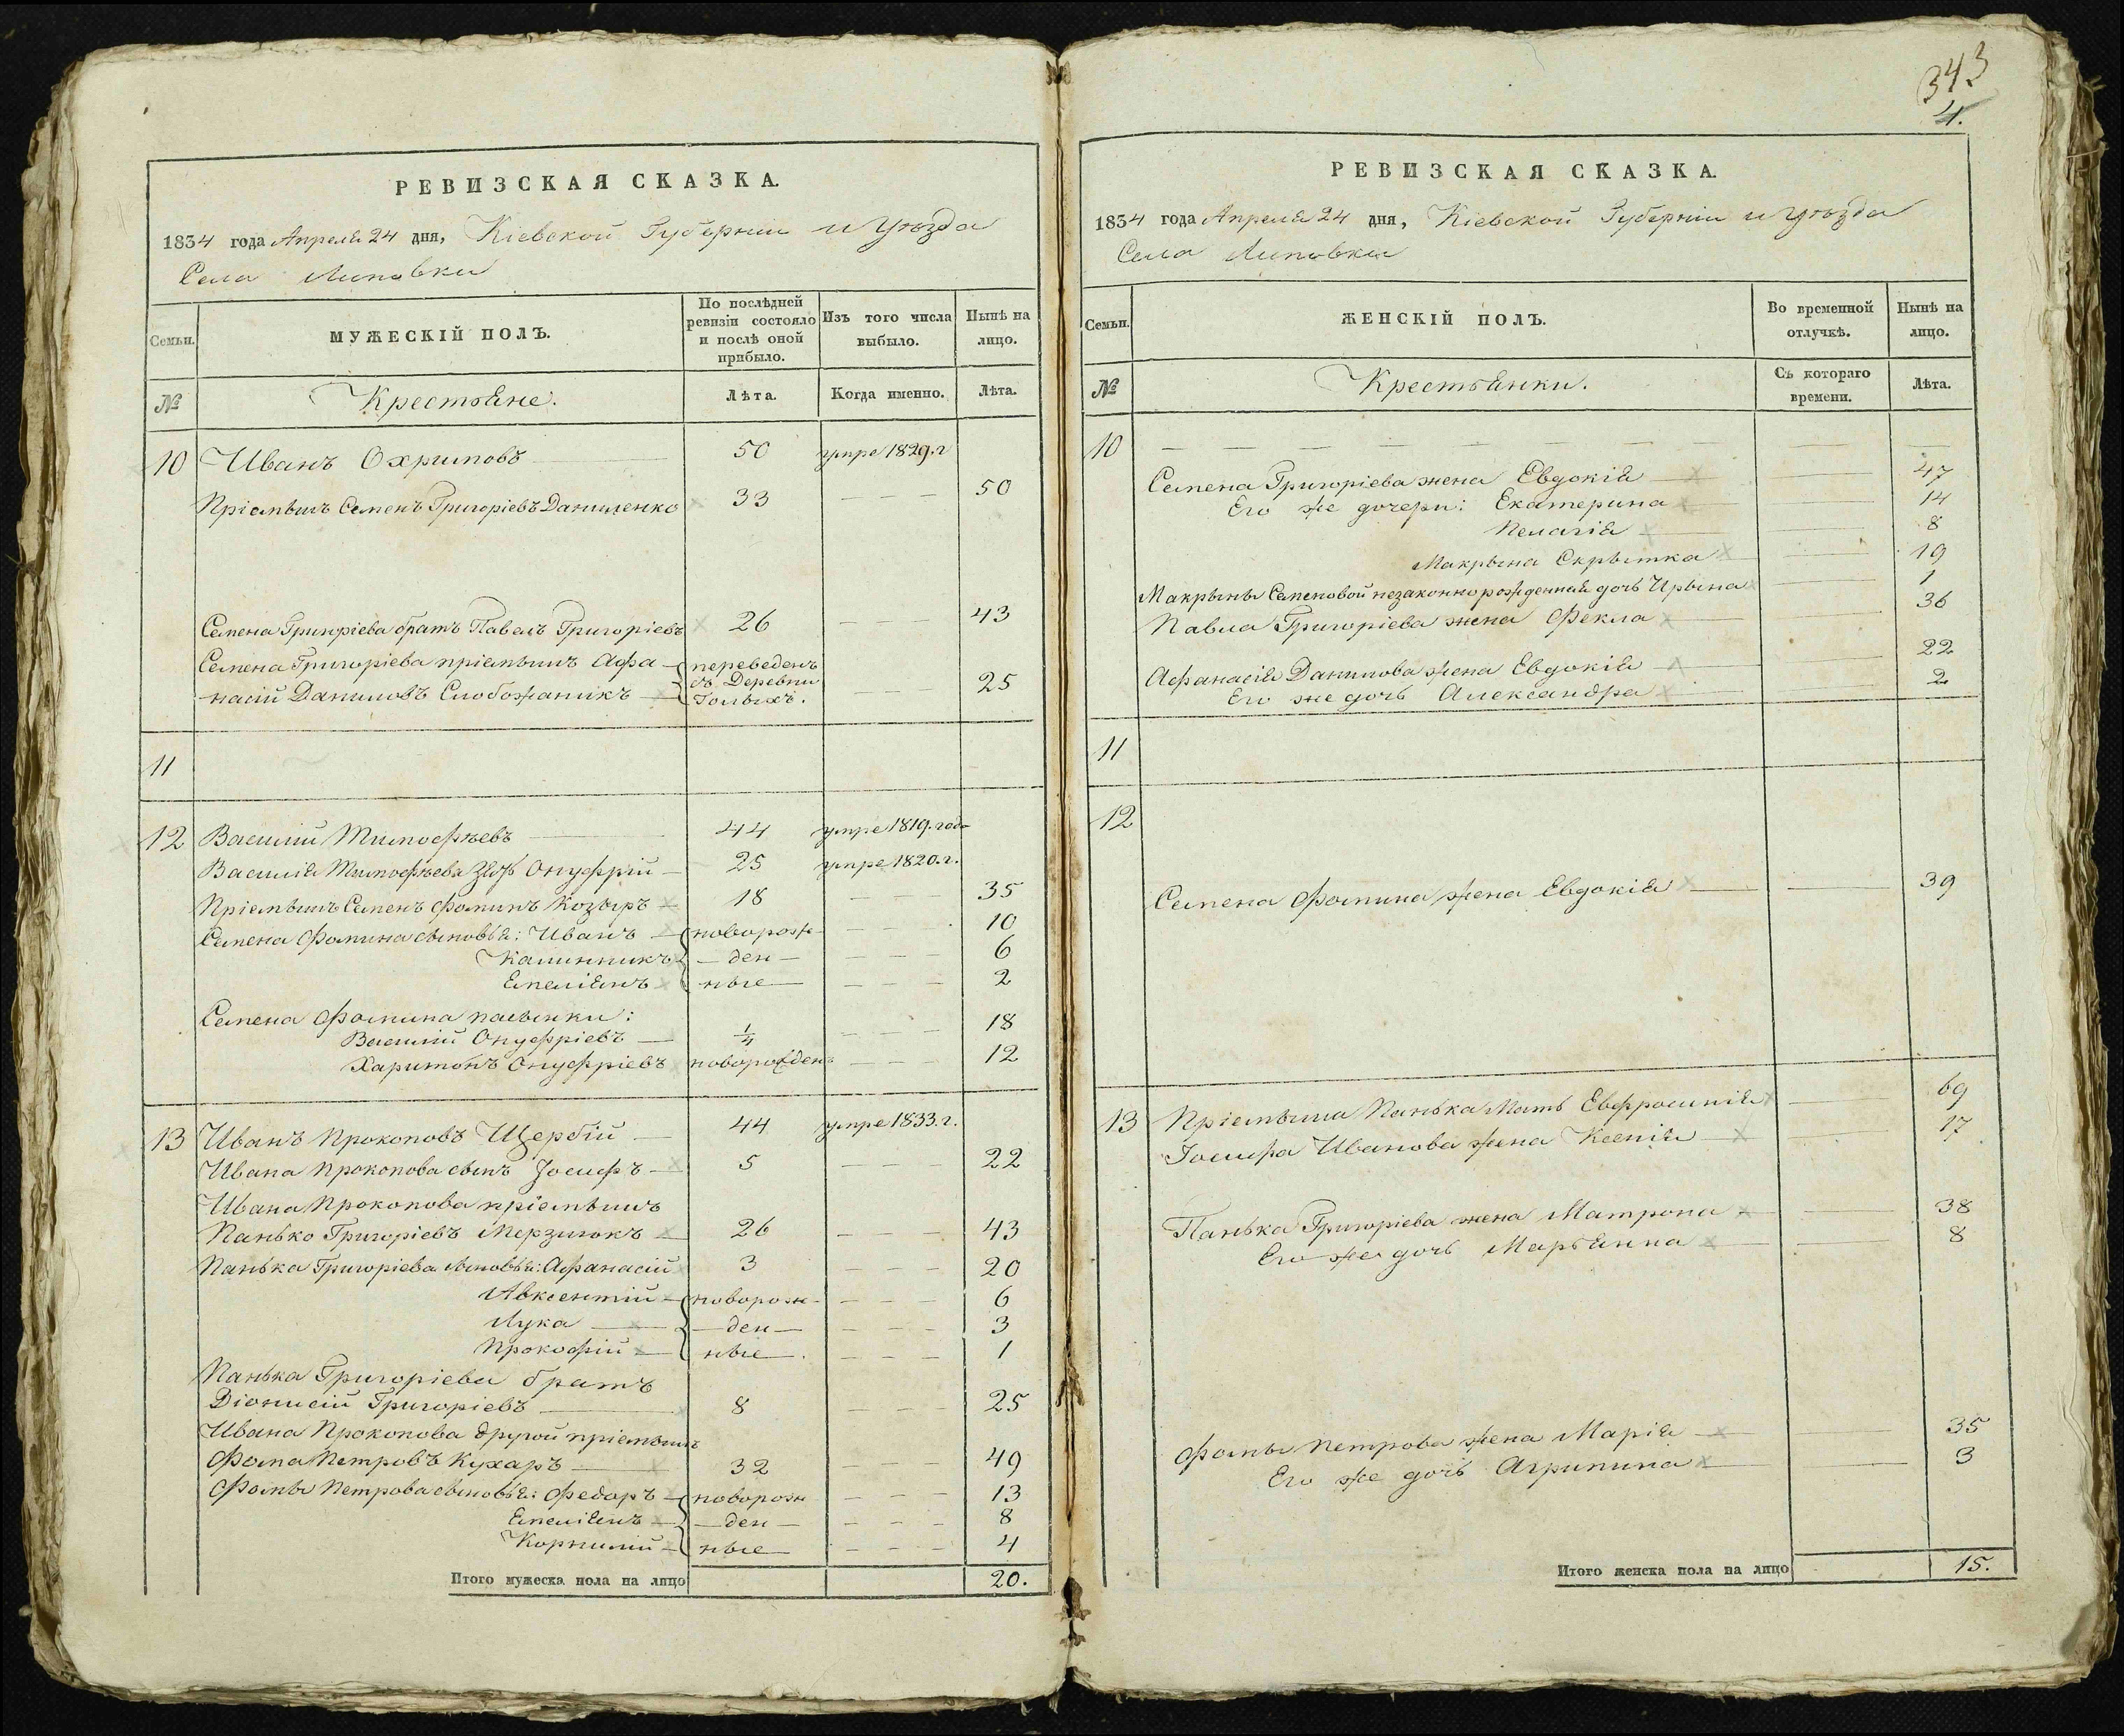 343
4.
РЕВИЗСКАЯ СКАЗКА.
1834 года Апреля 24 дня, Кіевской Губерніи и Уѣзда
Села Липовки
Семьи.
МУЖЕСКІЙ ПОЛЪ.
По послѣдней ревизіи состояло и послѣ оной прибыло.
Изъ того числа выбыло.
Нынѣ на лицо.
№
Крестьяне.
Лѣта.
Когда именно.
Лѣта.
10 Иванъ Охримовъ 50 умре 1829.г
Пріемышъ Семенъ Григоріевъ Даниленко 33 50
Семена Григоріева братъ Павелъ Григоріевъ 26 43
Семена Григоріева пріемышъ Афа- переведенъ
насій Даниловъ Слобожаникъ съ Деревни Голыхъ. 25
11
12 Василій Тимофѣевъ 44 умре 1819.года
Василія Тимофѣева зять Онуфрій 25 умре 1820.г.
Пріемышъ Семенъ Фоминъ Козырь 18 35
Семена Фомина сыновья: Иванъ новорож- 10
Калинникъ ден- 6
Емеліянъ ные 2
Семена Фомина пасынки:
Василій Онуфріевъ 1/4 18
Харитонъ Онуфріевъ новорожденъ 12
13 Иванъ Прокоповъ Щербій 44 умре 1833.г.
Ивана Прокопова сынъ Іосифъ 5 22
Ивана Прокопова пріемышъ
Панько Григоріевъ Мерзлюкъ 26 43
Панька Григоріева сыновья: Афанасій 3 20
Авксентій новорож- 6
Лука ден- 3
Прокофій ные. 1
Панька Григоріева братъ
Діонисій Григоріевъ 8 25
Ивана Прокопова другой пріемышъ
Фома Петровъ Кухаръ 32 49
Фомы Петрова сыновья: Федоръ новорож 13
Емеліянъ ден- 8
Корнилій ные 4
Итого мужеска пола на лицо 20.
РЕВИЗСКАЯ СКАЗКА.
1834 года Апреля 24 дня, Кіевской Губерніи и Уѣзда
Села Липовки
Семьи.
ЖЕНСКІЙ ПОЛЪ.
Во временной отлучкѣ.
Нынѣ на лицо.
№
Крестьянки.
Съ котораго времени.
Лѣта.
10
Семена Григоріева жена Евдокія 47
Его же дочери: Екатерина 14
Пелагія 8
Макрына Скрытка 19
Макрыны Семеновой незаконнорожденная дочь Ирына 1
Павла Григоріева жена Фекла 36
Афанасія Данилова жена Евдокія 22
Его же дочь Александра 2
11
12
Семена Фомина жена Евдокія 39
13 Пріемыша Панька мать Евфросинія 69
Іосифа Иванова жена Ксенія 17
Панька Григоріева жена Матрона 38
Его же дочь Марьянна 8
Фомы Петрова жена Марія 35
Его же дочь Агрипина 3
Итого женска пола на лицо 15.